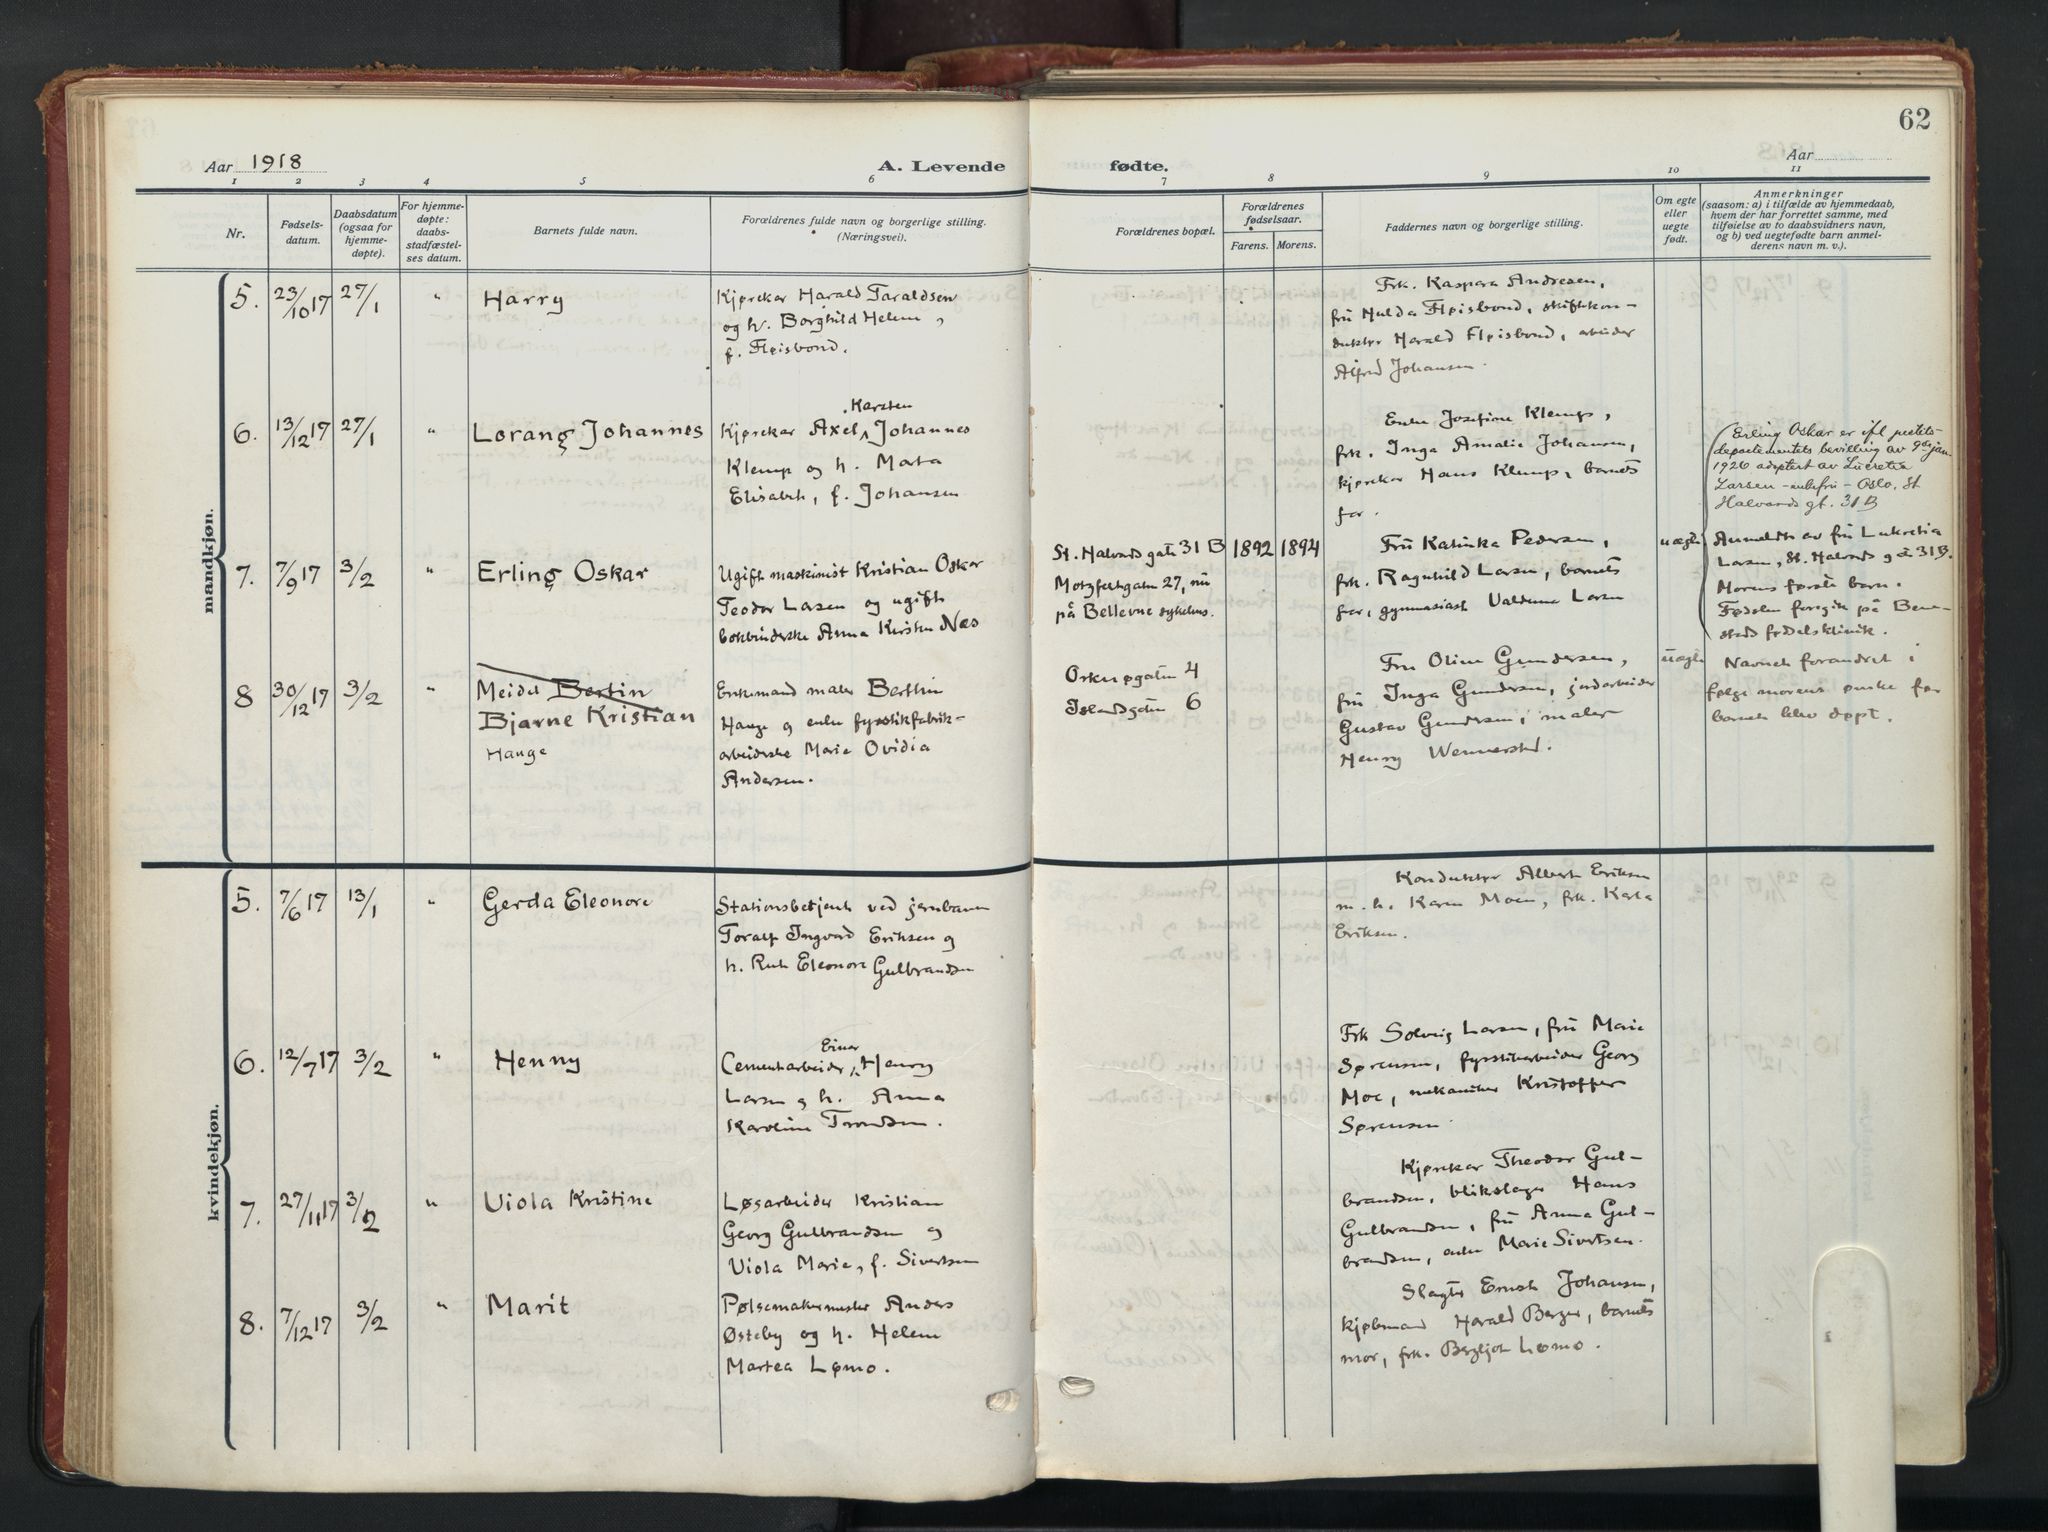 Aar 1918
A. Levende
1 2 3 4 5 6
Nr.
Fødsels-
datum.
Daabsdatum
(ogsaa for
hjemme-
døpte).
For hjemme-
døpte:
daabs-
stadfæstel-
ses datum.
Barnets fulde navn.
Forældrenes fulde navn og borgerlige stilling.
(Næringsvei).
mandkjøn.
5. 23/10 17 27/1 " Harry
Kjørekar Harald Taraldsen
og h. Borghild Helene,
f. Fløisbond.
6. 13/12 17 27/1 " Lorang Johannes
Karsten
Kjørekar Axel Johannes
Klemp og h. Marta
Elisabeth, f. Johansen
7. 7/9 17 3/2 " Erling Oskar
Ugift maskinist Kristian Oskar
Teodor Larsen og ugift
bokbinderske Anna Kirstine Næs
8 30/12 17 3/2 " Meidel Bertin
Bjarne Kristian
Hauge
Enkemand maler Berthin
Hauge og enke fyrstikfabrik-
arbeiderske Marie Ovidia
Andersen.
kvindekjøn.
5. 7/6 17 13/1 " Gerda Eleonore
Stationsbetjent ved jernbanen
Toralf Ingvard Eriksen og
h. Ruth Eleonore Gulbrandsen
6. 12/7 17 3/2 " Henny
Einar
Cementarbeider Henry
Larsen og h. Anna
Karoline Trondsen.
7. 27/11 17 3/2 " Viola Kristine
Løsarbeider Kristian
Georg Gulbrandsen og
Viola Marie, f. Sivertsen
8. 7/12 17 3/2 " Marit
Pølsemakermester Anders
Østeby og h. Helene
Martea Lømo.
62
fødte.
Aar
7 8 9 10 11
Forældrenes bopæl.
Forældrenes
fødselsaar.
Farens. Morens.
Faddernes navn og borgerlige stilling.
Om egte
eller
uegte
født.
Anmerkninger
(saasom: a) i tilfælde av hjemmedaab,
hvem der har forrettet samme, med
tilføielse av to daabsvidners navn,
og b) ved uegtefødte barn anmel-
derens navn m. v.).
Frk. Kaspara Andresen,
fru Hulda Fløisbond, skiftekon-
duktør Harald Fløisbond, arbeider
Alfred Johansen.
Enke Josefine Klemp,
frk. Inga Amalie Johansen,
kjørekar Hans Klemp, barnets
far.
Erling Oskar er ifl justits-
departementets bevilling av 9de jan.
1926 adoptert av Lucretia
Larsen - enkefru - Oslo, St
Halvards gt. 31 B
St. Halvards gate 31 B 1892 1894
Motzfeldtsgaten 27, nu
på Bellevue sykehus.
Fru Katinka Pedersen,
frk. Ragnhild Larsen, barnets
far, gymnasiast Valdemar Larsen
uægte
Anmeldt av fru Lukretia
Larsen, St. Halvards gate 31 B.
Morens første barn.
Fødselen foregik på
fødselsklinik.
Orknøgaten 4
Islandsgaten 6
Fru Oline Gundersen,
fru Inga Gundersen, jordarbeider
Gustav Gundersen, maler
Henry Wennersted.
uægte
Navnet forandret i
følge morens ønske før
barnet blev døpt.
Konduktør Albert Eriksen
m. h. Karen Moen, frk. Karla
Eriksen.
Frk Solveig Larsen, fru Marie
Sørensen, fyrstikarbeider Georg
Moe, mekaniker Kristoffer
Sørensen.
Kjørekar Theodor Gul-
brandsen, blikslager Hans
Gulbrandsen, fru Anna Gul-
brandsen, enke Marie Sivertsen.
Slagter Ernst Johansen,
kjøbmand Harald Berger, barnets
mor, frk. Bergljot Lømo.